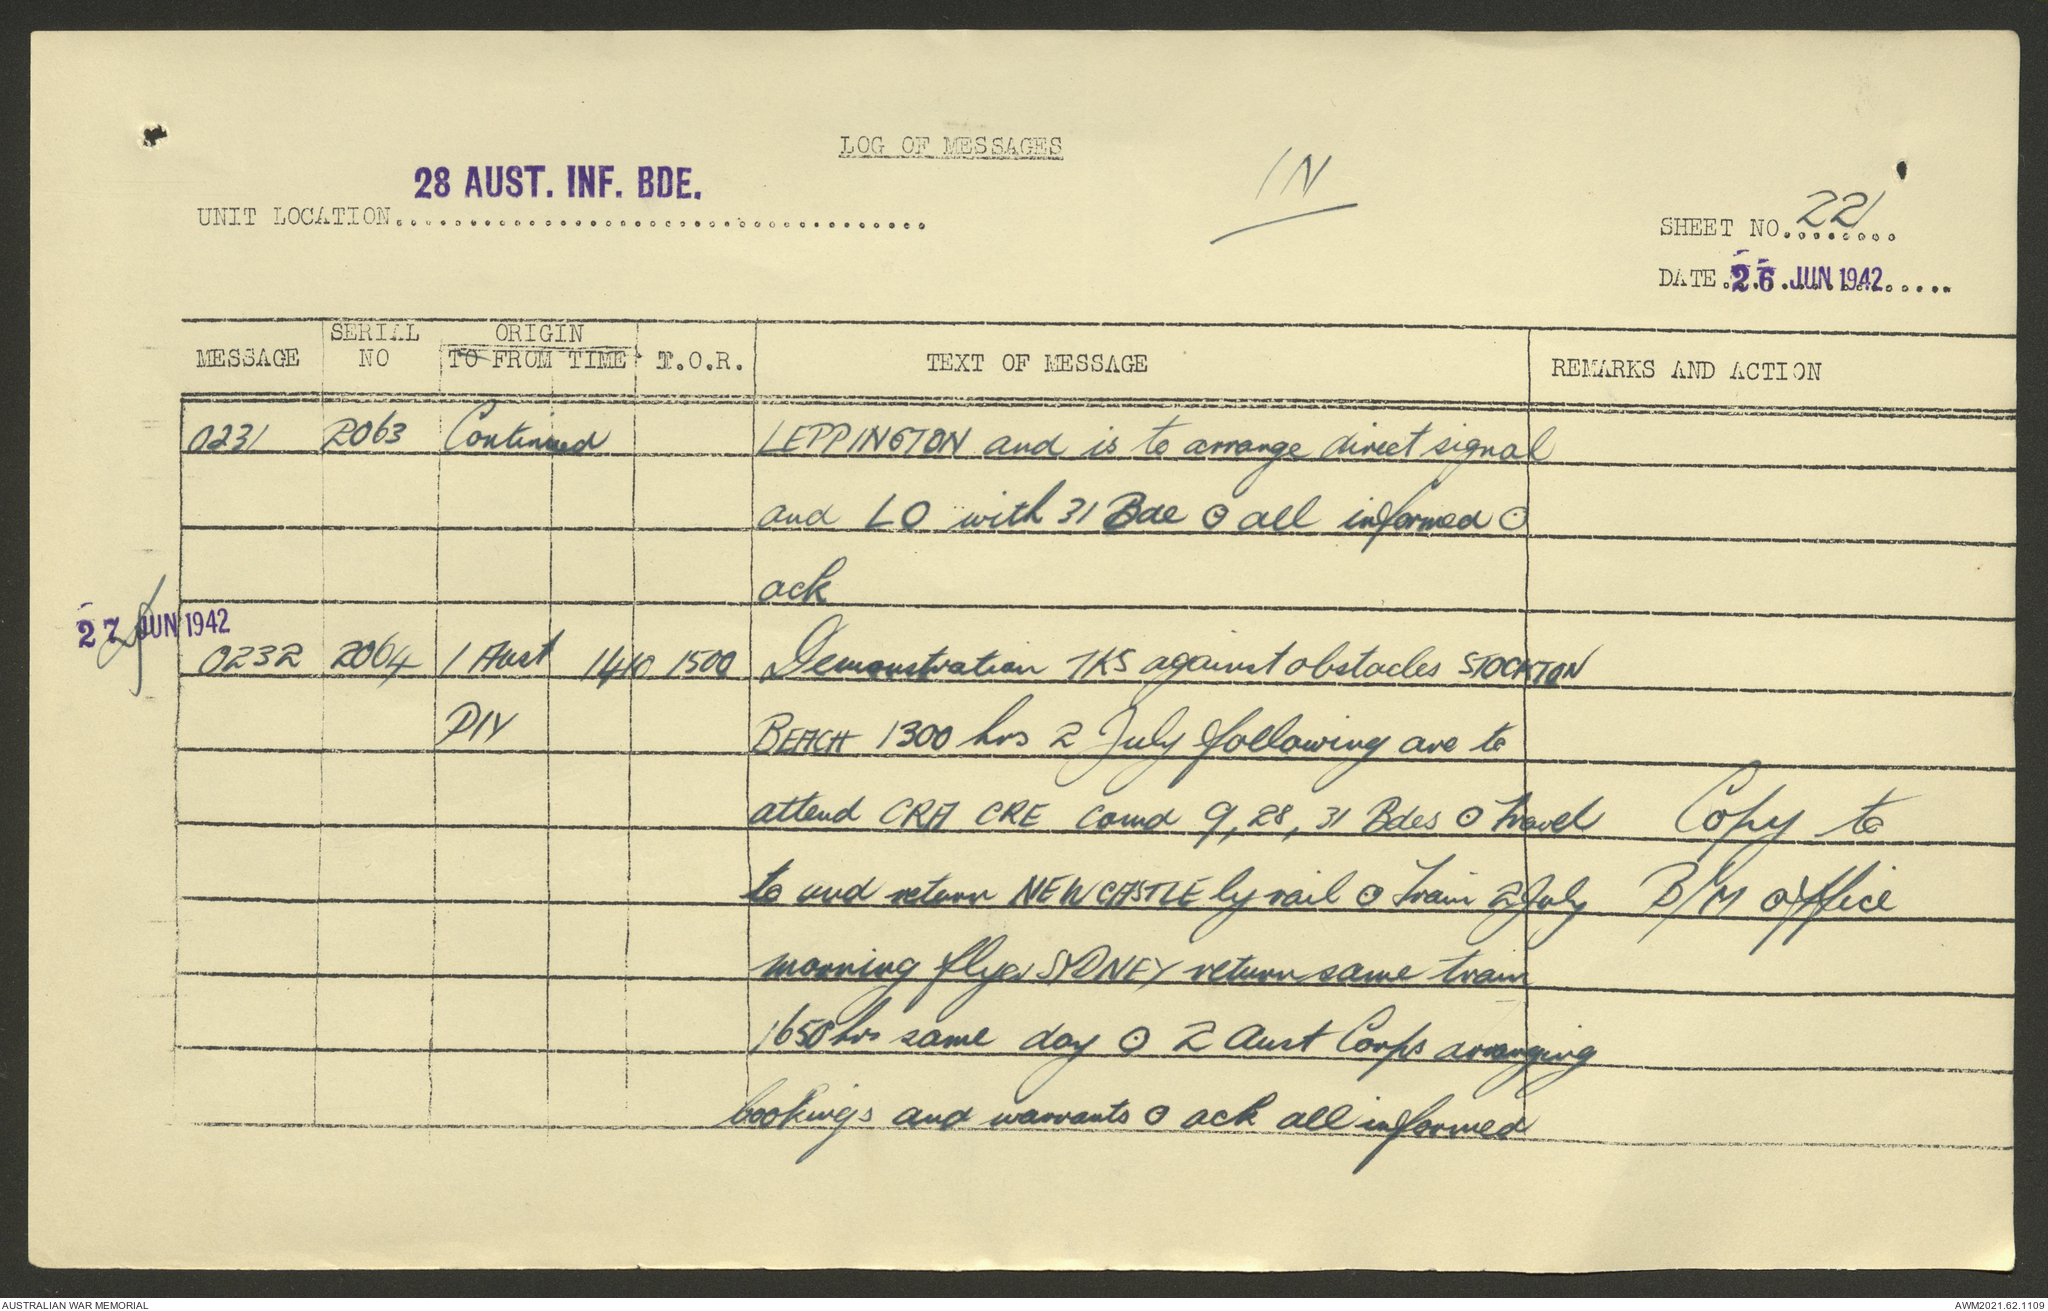 LOG OF MESSAGES
IN
28 AUST. INF. BDE.
UNIT LOCATION
SHEET NO. 221
DATE 26 JUN 1942
MESSAGE SERIAL NO ORIGIN TO FROM TIME T.O.R. TEXT OF MESSAGE REMARKS AND ACTION
0231 2063 Continued LEPPINGTON and is to arrange direct signal
and LO with 31 Bde ⊙ all informed ⊙
ack
27 JUN 1942
0232 2064 1 Aust 1410 1500 Demonstration TKS against obstacles STOCKTON
DIV BEACH 1300 hrs 2 July following are to
attend CRA CRE comd 9, 28, 31 Bdes ⊙ travel Copy to
to and return NEWCASTLE by rail ⊙ train 2 July B/M office
morning flyer SYDNEY return same train
1650 hrs same day ⊙ 2 Aust Corps arranging
bookings and warrants ⊙ ack all informed
AUSTRALIAN WAR MEMORIAL
AWM2021.62.1109